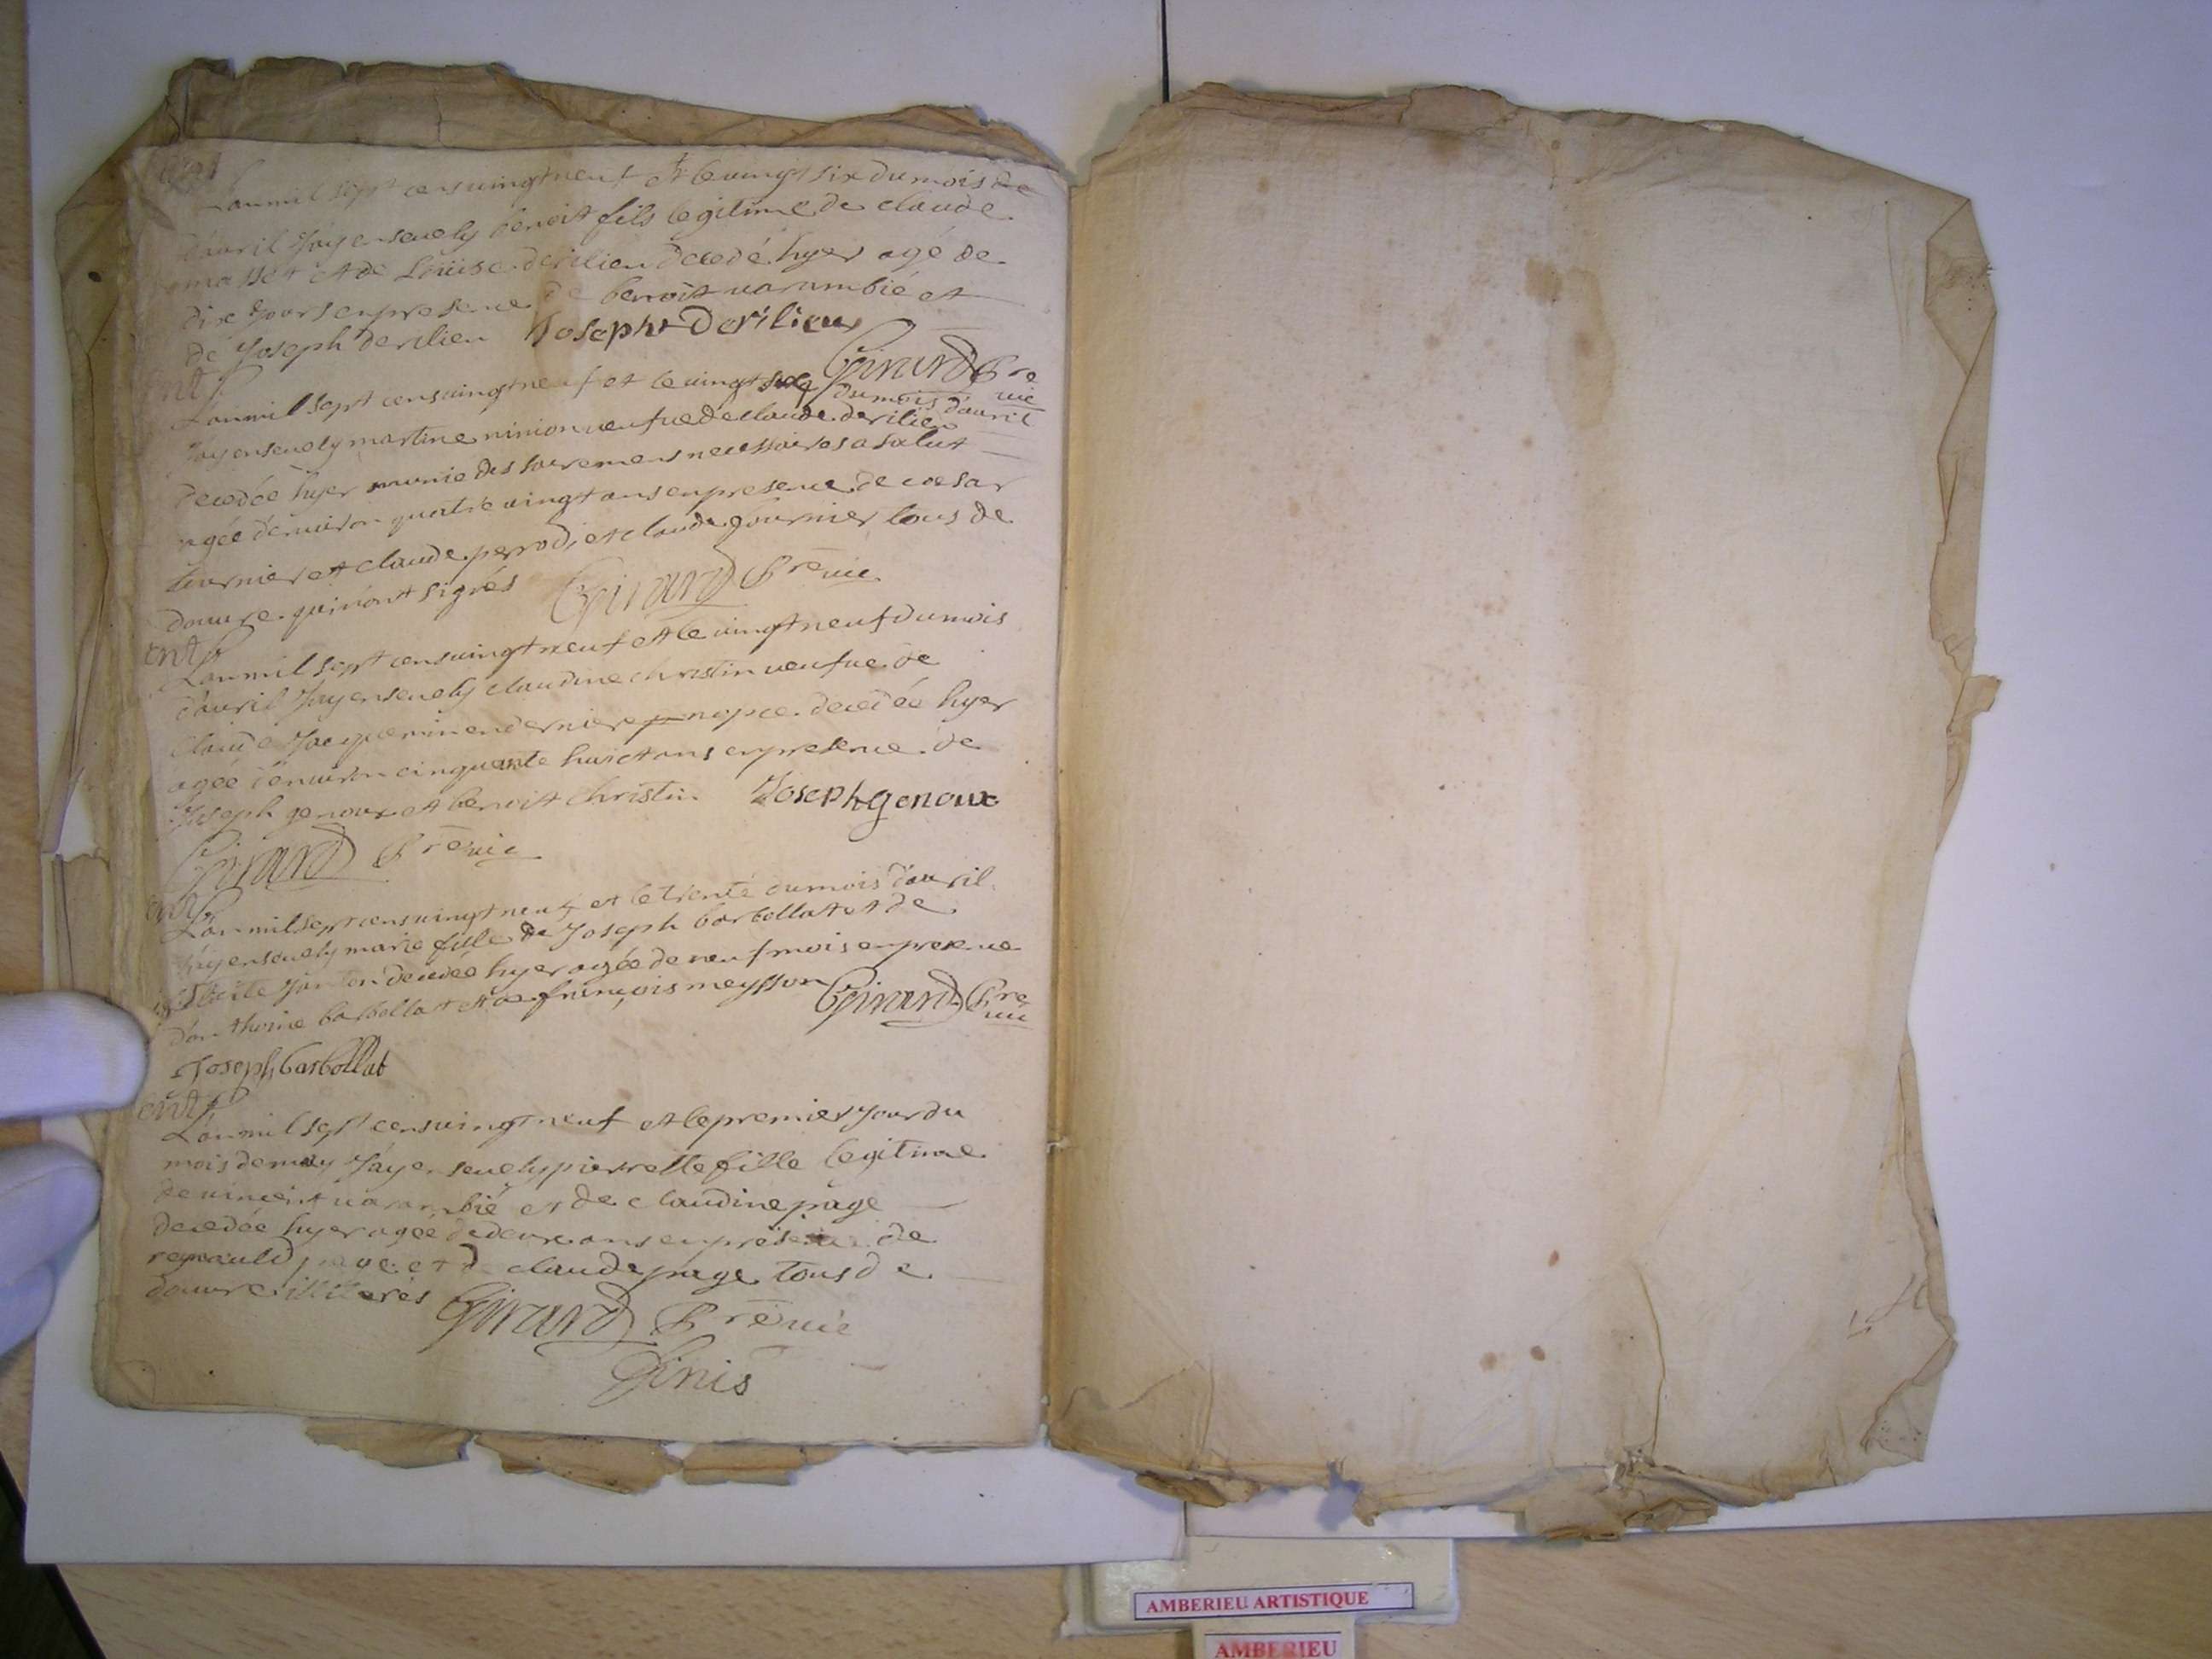 ent
Lan mil sept cens vingt neuf et le vingt six du mois de
d'avril j'ay ensevely benoit fils legitime de claude
masset et de Loüise derilieu decedé hyer agé de
dix jours en presence de benoit varambié et
de Joseph derilieu Joseph Derilieu
Girard Pre vic
ent
Lan mil sept cens vingt neuf et le vingt six du mois d'avril
J'ay ensevely martine ninion veufve de claude derilieu
decedée hyer munie des sacremens necessaires a salut
agée d'environ quatre vingt ans en presence de cesar
fournier et claude perrodi et claude fournier tous de
douvre qui n'ont signés Girard Pre vic
ent
Lan mil sept cens vingt neuf et le vingt neuf du mois
d'avril j'ay ensevely claudine christin veufve de
claude Jacquemin en derniere nopce decedée hyer
agée d'environ cinquante huict ans en presence de
Joseph genoux et benoit christin Joseph genoux
Girard Pre vic
ent
Lan mil sept cens vingt neuf et le trente du mois d'avril
j'ay ensevely marie fille de Joseph barbollat et de
janton decedée hyer agée de neuf mois en presence
d'anthoine barbollat et de françois meysson Girard Pre vic
Joseph barbollat
ent
Lan mil sept cens vingt neuf et le premier jour du
mois de may j'ay ensevely pierrette fille legitime
de vincent varambié et de claudine page
decedée hyer agée de deux ans en presence de
page et de claude page tous de
douvre illiterés Girard Pre vic
finis
AMBERIEU ARTISTIQUE
AMBERIEU